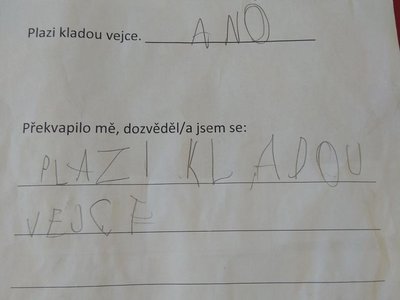 Plazi kladou vejce. ANO
Překvapilo mě, dozvěděl/a jsem se:
PLAZI KLADOU
VEJCE